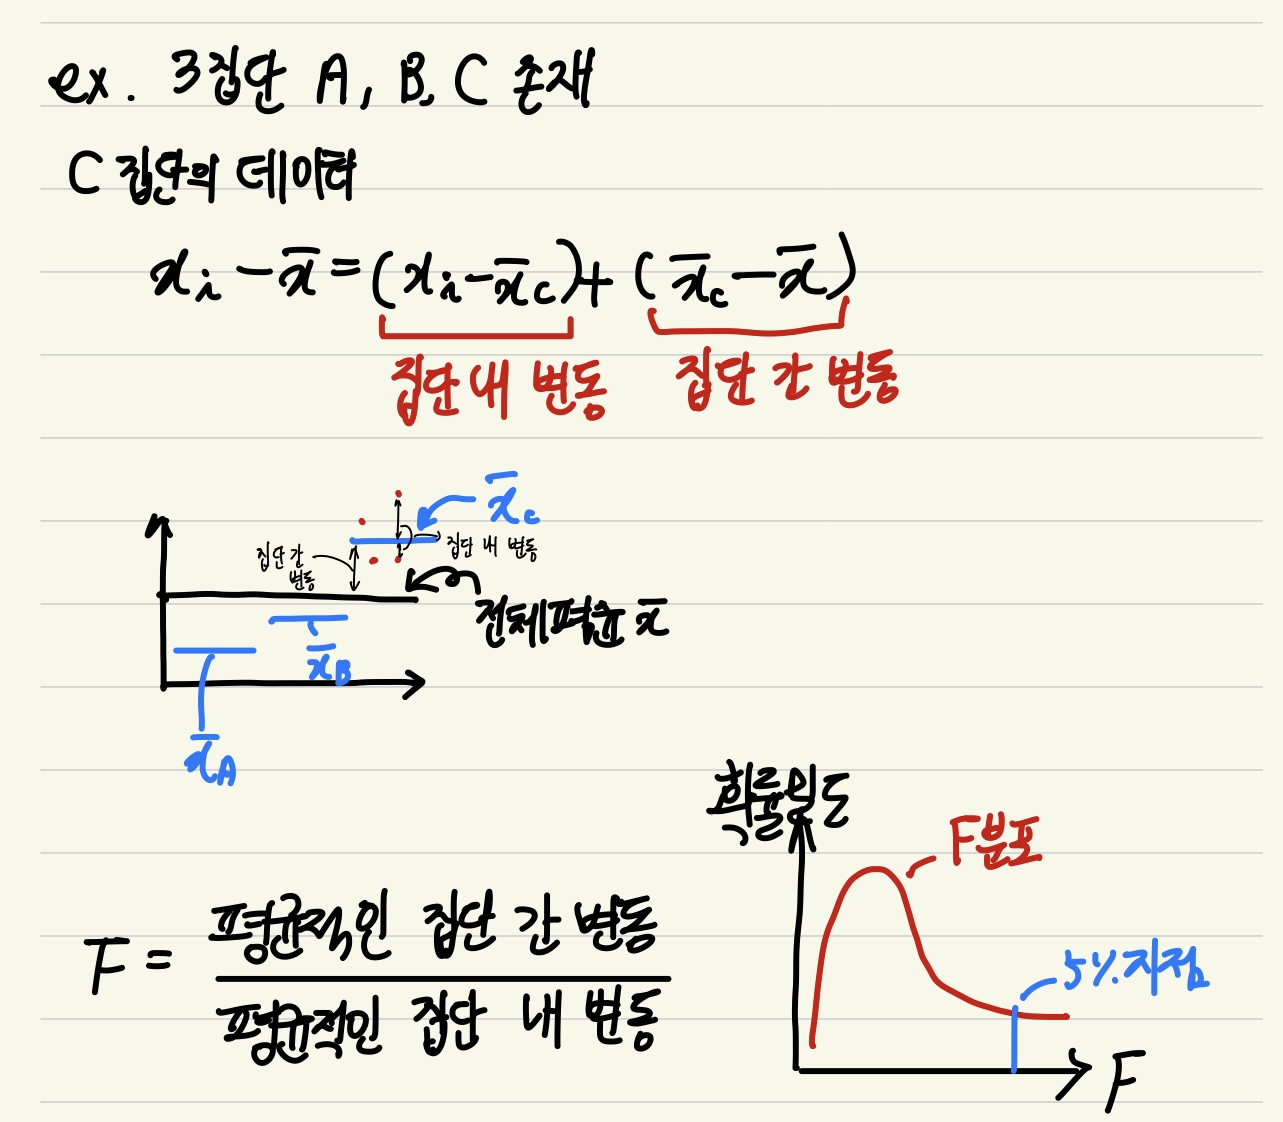 ex. 3집단 A, B, C 존재
C 집단의 데이터
xᵢ - x̄ = (xᵢ - x̄c) + (x̄c - x̄)
집단 내 변동 집단 간 변동
x̄c
집단 간
변동
집단 내 변동
전체평균 x̄
x̄B
x̄A
확률밀도
F분포
5% 지점
F
F = 평균적인 집단 간 변동
평균적인 집단 내 변동